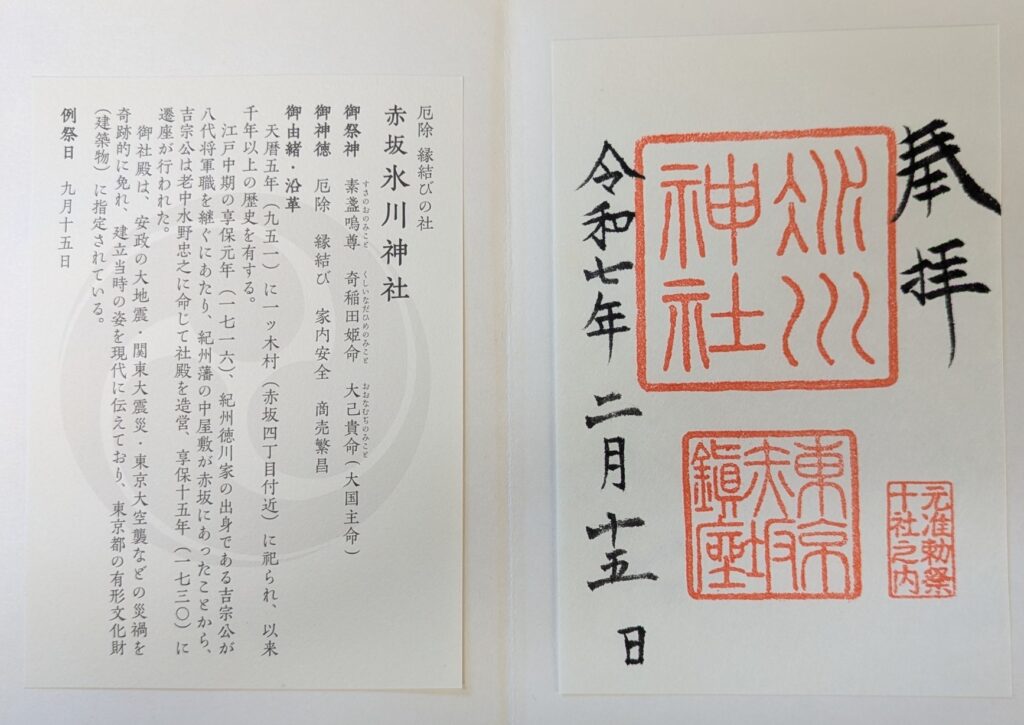 奉拝
元准勅祭
十社之内
氷川
神社
東京
赤坂
鎭座
令和七年 二月十五日
厄除 縁結びの社
赤坂氷川神社
すさのおのみこと くしいなだひめのみこと おおなむぢのみこと
御祭神 素盞嗚尊 奇稲田姫命 大己貴命(大国主命)
御神徳 厄除 縁結び 家内安全 商売繁昌
御由緒・沿革
天暦五年(九五一)に一ッ木村(赤坂四丁目付近)に祀られ、以来
千年以上の歴史を有する。
江戸中期の享保元年(一七一六)、紀州徳川家の出身である吉宗公が
八代将軍職を継ぐにあたり、紀州藩の中屋敷が赤坂にあったことから、
吉宗公は老中水野忠之に命じて社殿を造営、享保十五年(一七三〇)に
遷座が行われた。
御社殿は、安政の大地震・関東大震災・東京大空襲などの災禍を
奇跡的に免れ、建立当時の姿を現代に伝えており、東京都の有形文化財
(建築物)に指定されている。
例祭日 九月十五日